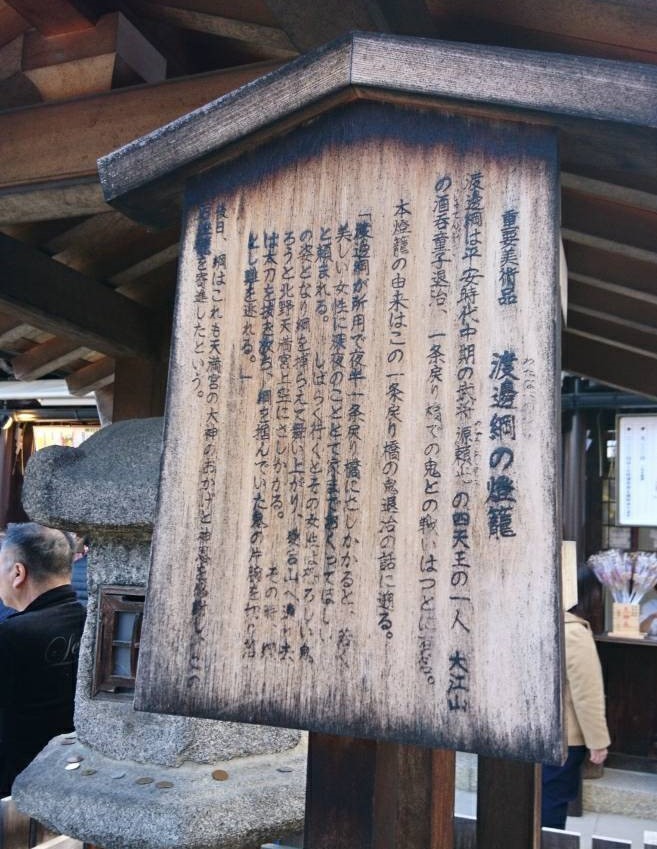 重要美術品　渡邊綱の燈籠
わたなべ
渡邊綱は平安時代中期の武将 源頼光の四天王の一人 大江山
の酒呑童子退治、一条戻り橋での鬼との戦いはつとに有名。
本燈籠の由来はこの一条戻り橋の鬼退治の話に遡る。
「渡邊綱が所用で夜半一条戻り橋にさしかかると、若く
美しい女性に深夜のこととて家まで
と頼まれる。しばらく行くとその女性は恐ろしい鬼
の姿となり綱を捕らえて舞い上がり、愛宕山へ
ろうと北野天満宮上空にさしかかる。その時 綱
は太刀を抜き放ち、綱を掴んでいた鬼の片腕を切り落
とし難を逃れる。」
後日、綱はこれも天満宮の大神のおかげと神恩を感謝し、この
石燈籠を寄進したという。